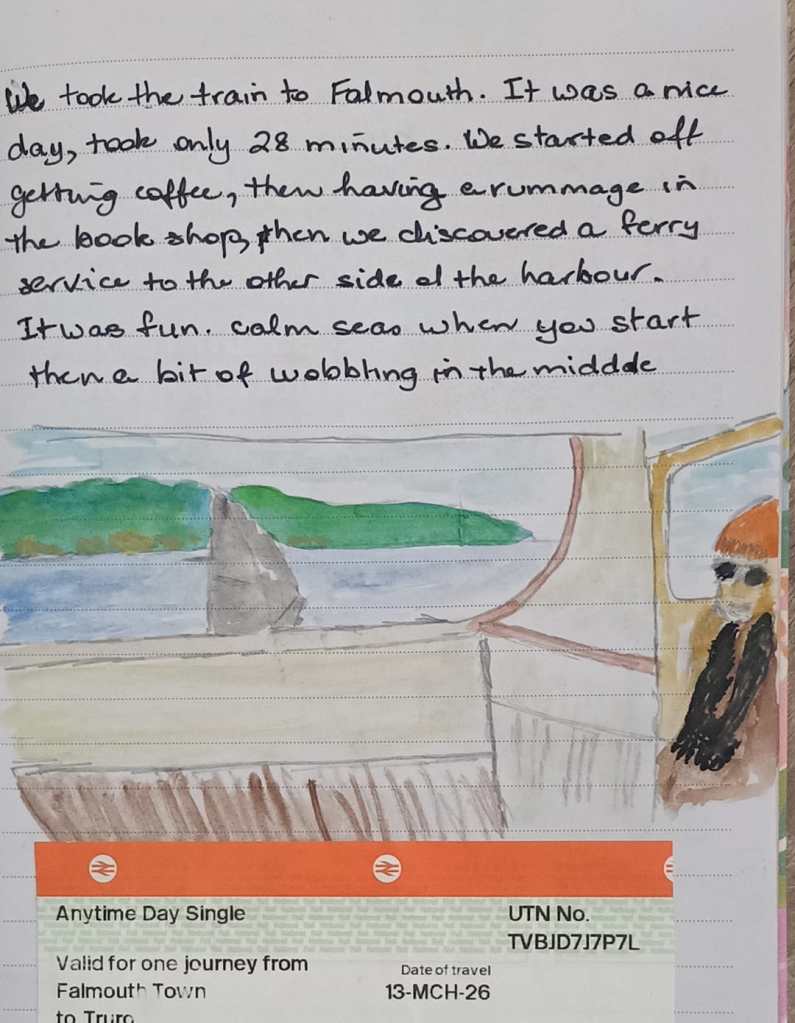 We took the train to Falmouth. It was a nice
day, took only 28 minutes. We started off
getting coffee, then having a rummage in
the book shop, then we discovered a ferry
service to the other side of the harbour.
It was fun. Calm seas when you start
then a bit of wobbling in the middle
Anytime Day Single
UTN No.
TVBJD7J7P7L
Valid for one journey from
Date of travel
Falmouth Town
13-MCH-26
to Truro